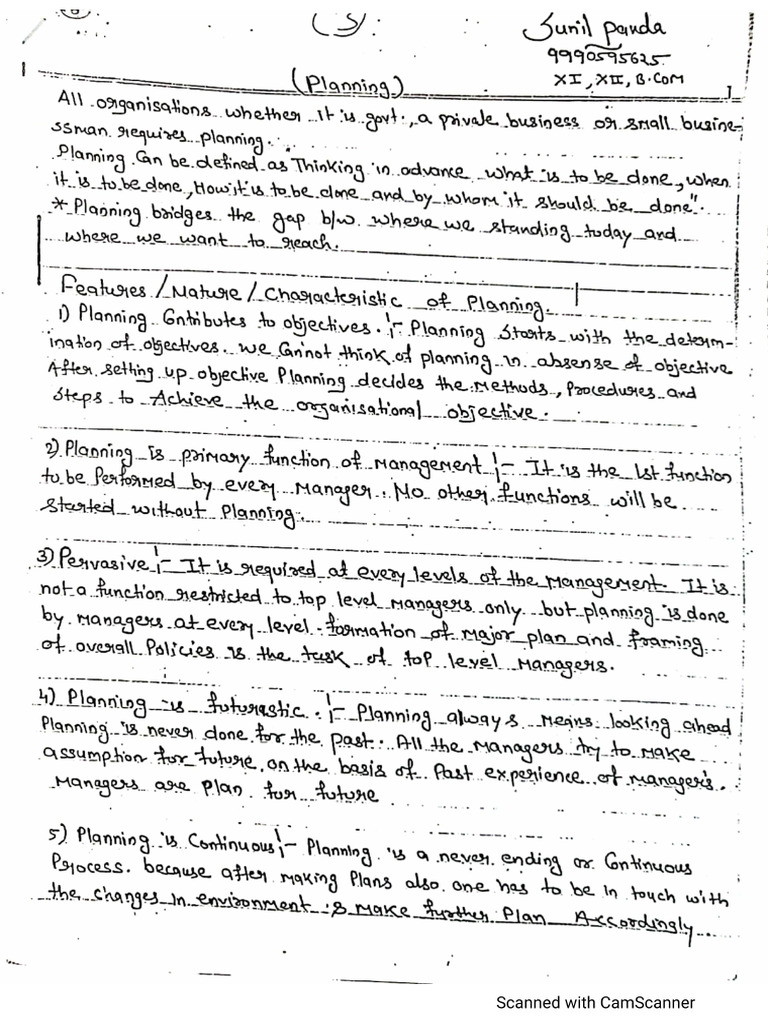 (3)
Sunil Panda
9990595625
XI, XII, B.COM
(Planning)
All organisations whether it is govt., a private business or small busine-
ssman requires planning.
Planning Can be defined as Thinking in advance what is to be done, when
it is to be done, How it is to be done and by whom it should be done".
* Planning bridges the gap b/w where we standing today and
where we want to reach.
Features/Nature/Characteristic of Planning.
1) Planning Contributes to objectives. :- Planning starts with the determ-
ination of objectives. we Cannot think of planning in absense of objective
After setting up objective Planning decides the methods, Procedures and
steps to Achieve the organisational objective.
2) Planning is primary function of management :- It is the 1st function
to be Performed by every Manager. No other functions will be
started without Planning.
3) Pervasive :- It is required at every levels of the management. It is
not a function restricted to top level managers only but planning is done
by managers at every level. formation of major plan and framing
of overall Policies is the task of top level managers.
4) Planning is futurestic. :- Planning always means looking ahead
Planning is never done for the past. All the managers try to make
assumption for future on the basis of Past experience of manager's.
Managers are plan for future
5) Planning is Continuous :- Planning is a never ending or Continuous
Process. because after making Plans also one has to be in touch with
the changes in environment & make further Plan Accordingly
Scanned with CamScanner